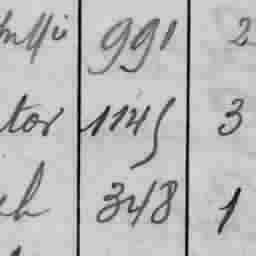 991 2
tor 1145 3
h 348 1